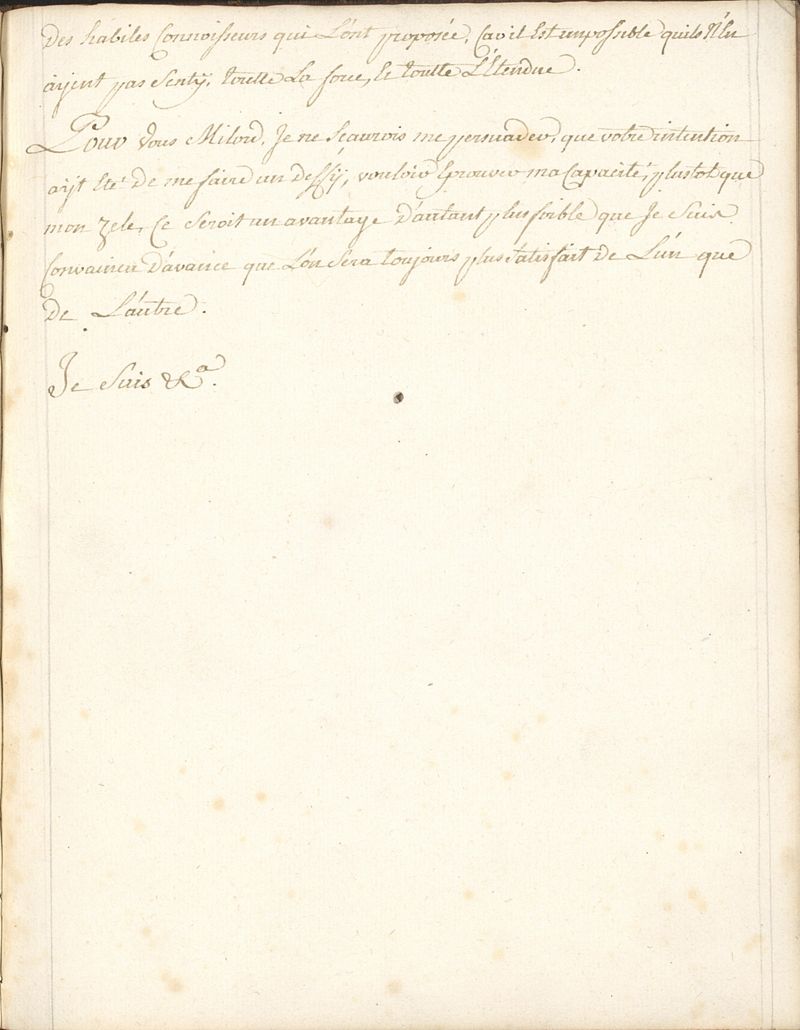 des habiles Connoisseurs qui L'ont proposée, Car il Est impossible quils N'en
ayent pas Senty, toutte La force, Et toutte L'Etendue.
Pour Vous Milord, Je ne Scaurois me persuader, que votre intention
ayt Eté De me faire un Deffy, vouloir Eprouver ma Capacité, plustot que
mon Zele, Ce Seroit un avantage D'autant plus foible que Je Suis
Convaincu D'avance que L'on Sera toujours plus Satisfait de L'un que
de L'autre.
Je Suis &a.